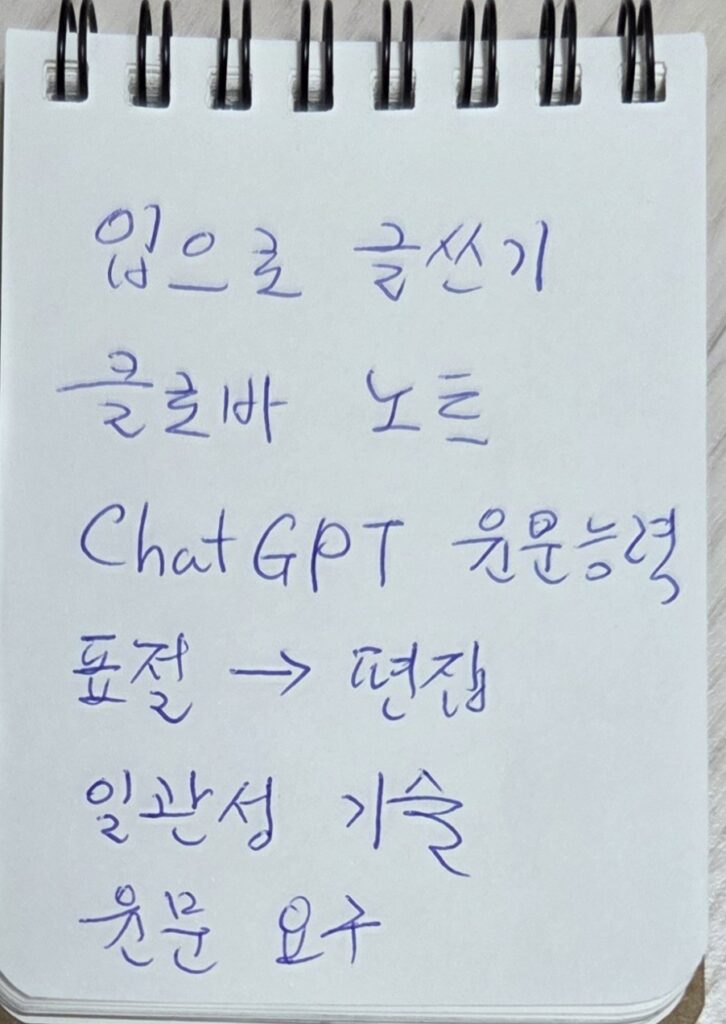 입으로 글쓰기
클로바 노트
ChatGPT 윤문능력
표절 → 편집
일관성 기술
윤문 요구